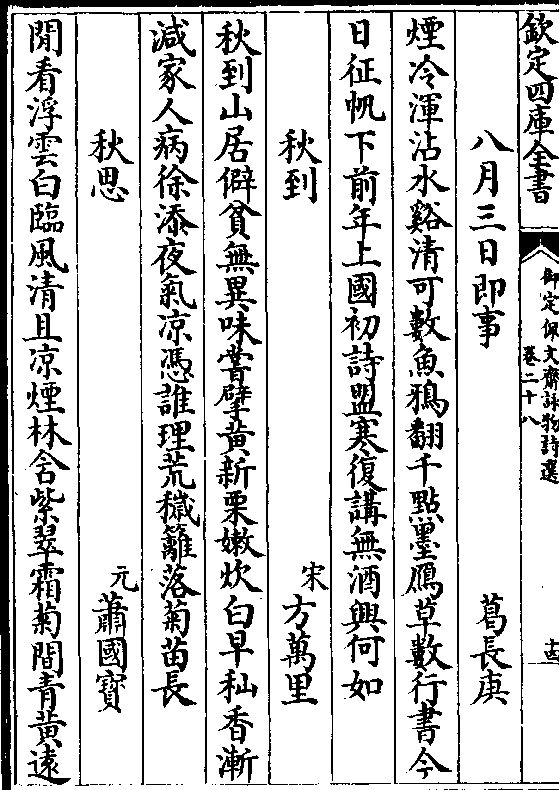 欽定四庫全書
御定佩文齋詠物詩選
卷二十八
八月三日即事
葛長庚
煙冷渾沾水谿清可數魚鴉翻千點墨鴈草數行書今
日征帆下前年上國初詩盟寒復講無酒興何如
秋到
宋方萬里
秋到山居僻貧無異味嘗擘黃新栗嫩炊白早秈香漸
減家人病徐添夜氣凉憑誰理荒穢籬落菊苗長
秋思
元蕭國寶
閒看浮雲白臨風清且凉煙林含紫翠霜菊間青黃遠